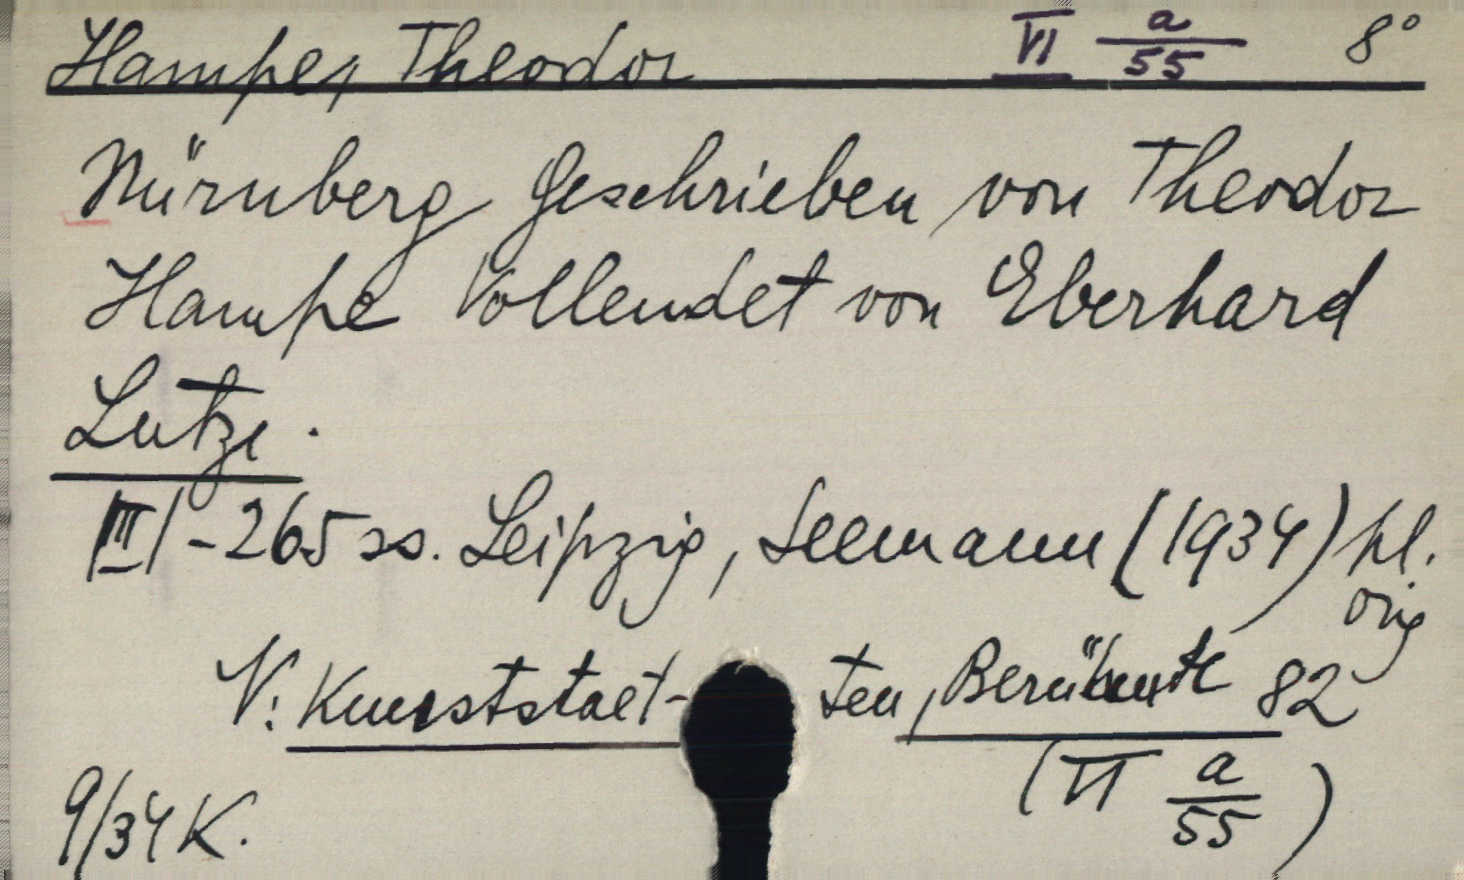 Hampe, Theodor VI a/55 8°
Nürnberg Geschrieben von Theodor
Hampe Vollendet von Eberhard
Lutze.
|III| - 265 ss. Leipzig, Seemann (1934) hl.
orig
V: Kunststaet- ten, Berühmte 82
(VI a/55)
9/34 K.